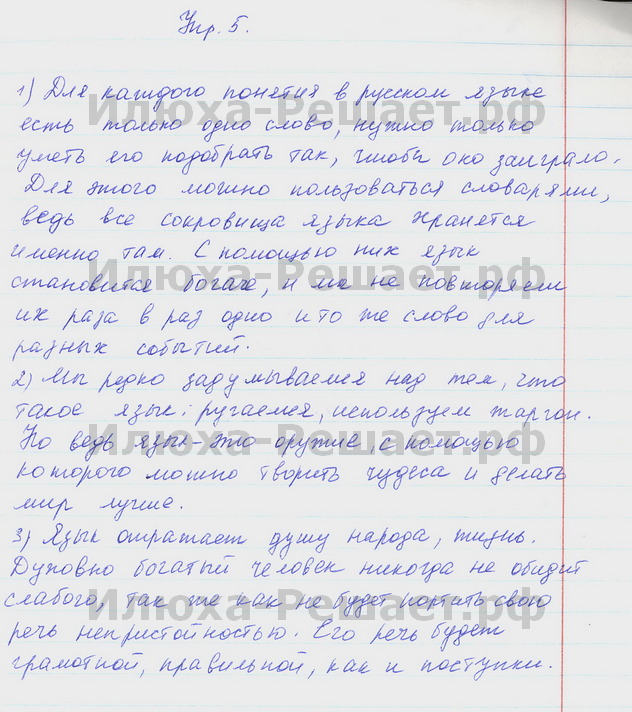 Упр. 5.
1) Для каждого понятия в русском языке
есть только одно слово, нужно только
уметь его подобрать так, чтобы оно заиграло.
Для этого можно пользоваться словарями,
ведь все сокровища языка хранятся
именно там. С помощью них язык
становится богаче, и мы не повторяем
их раза в раз одно и то же слово для
разных событий.
2) Мы редко задумываемся над тем, что
такое язык: ругаемся, используем жаргон.
Но ведь язык - это оружие, с помощью
которого можно творить чудеса и делать
мир лучше.
3) Язык отражает душу народа, жизнь.
Духовно богатый человек никогда не обидит
слабого, так же как не будет портить свою
речь непристойностью. Его речь будет
грамотной, правильной, как и поступки.
Илюха-Решает.рф
Илюха-Решает.рф
Илюха-Решает.рф
Илюха-Решает.рф